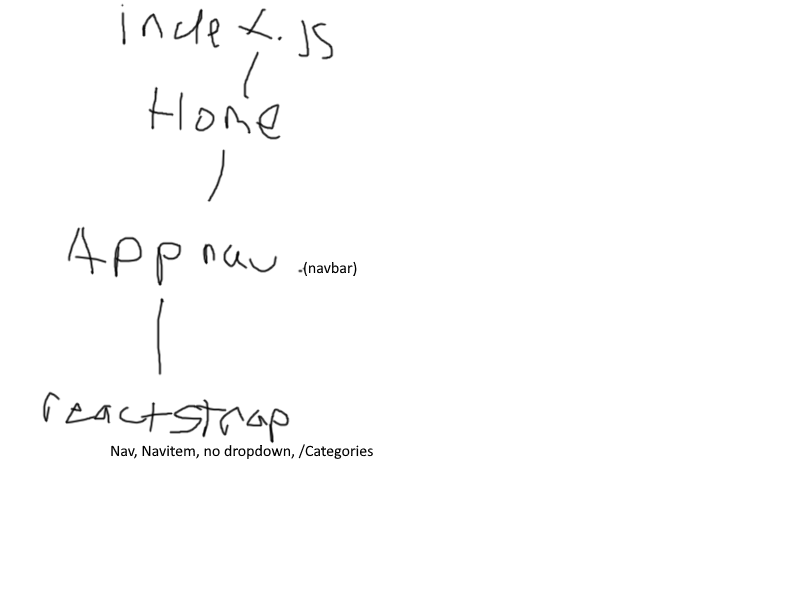 index.js
Home
Appnav -(navbar)
reactstrap
Nav, Navitem, no dropdown, /Categories